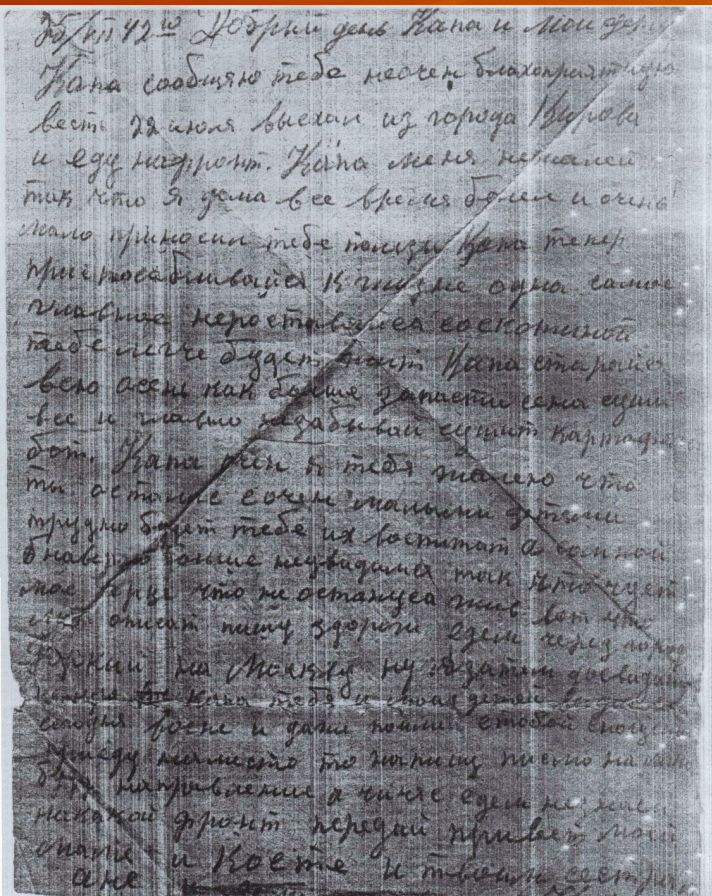 42 Добрый день Капа и мои
Капа сообщяю тебе неочен благоприятную
весть 28 июля выехал из города Кирова
и еду нафронт. Капа меня нежалей
так что я дома все время болел и очень
мало приносил тебе ползы Капа тепер
приспосабливайся к жизне одна самое
главное нероставайся соскотиной
тебе легче будет жит Капа старайся
всю осень как больше запасти сена суши
все и главно незабывай сушит картофел
бот. Капа я тебя жалею что
ты остаеш сочен малыми детьми
трудно будет тебе их воспитат а сомной
наверно больше неувидимся так что чует
мое серце что не остануса жив вот что
описат пишу здороги едем через город
Горкий на Москву ну азатем досвидания
Капа тебя и своих детей
сегодня восне и даже пошли стобой
приеду наместо то напишу писмо
направление а чичас едем незнаем
накакой фронт передай привет моей
и Косте и твоим сестрам